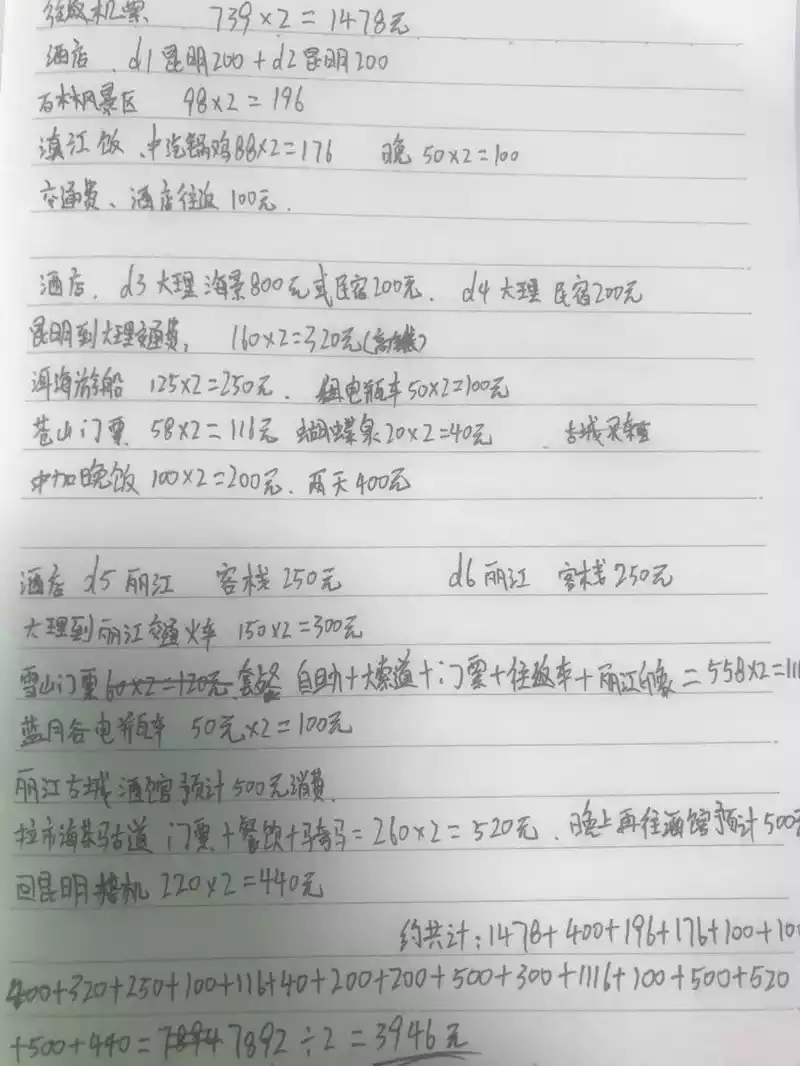 往返机票 739×2=1478元
酒店、d1昆明200+d2昆明200
石林风景区 98×2=196
滇江饭、中汽锅鸡88×2=176 晚50×2=100
交通费、酒店往返100元.
酒店、d3大理 海景800元或民宿200元、d4大理 民宿200元
昆明到大理交通费, 160×2=320元(高铁)
洱海游船 125×2=250元、租电瓶车50×2=100元
苍山门票 58×2=116元 蝴蝶泉20×2=40元
中加晚饭 100×2=200元、两天400元
酒店 d5丽江 客栈250元 d6丽江 客栈250元
大理到丽江交通火车 150×2=300元
雪山门票60×2=120元 套餐 自助+大索道+门票+往返车+丽江印象=558×2=111
蓝月谷电瓶车 50元×2=100元
丽江古城酒馆预计500元消费
拉市海茶马古道 门票+餐饮+骑马=260×2=520元、晚上再往酒馆预计500元
回昆明 机 220×2=440元
约共计:1478+400+196+176+100+100
400+320+250+100+116+40+200+200+500+300+1116+100+500+520
+500+440=7894 7892÷2=3946元